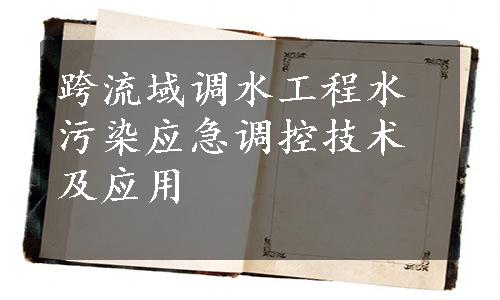 跨流域调水工程水
污染应急调控技术
及应用